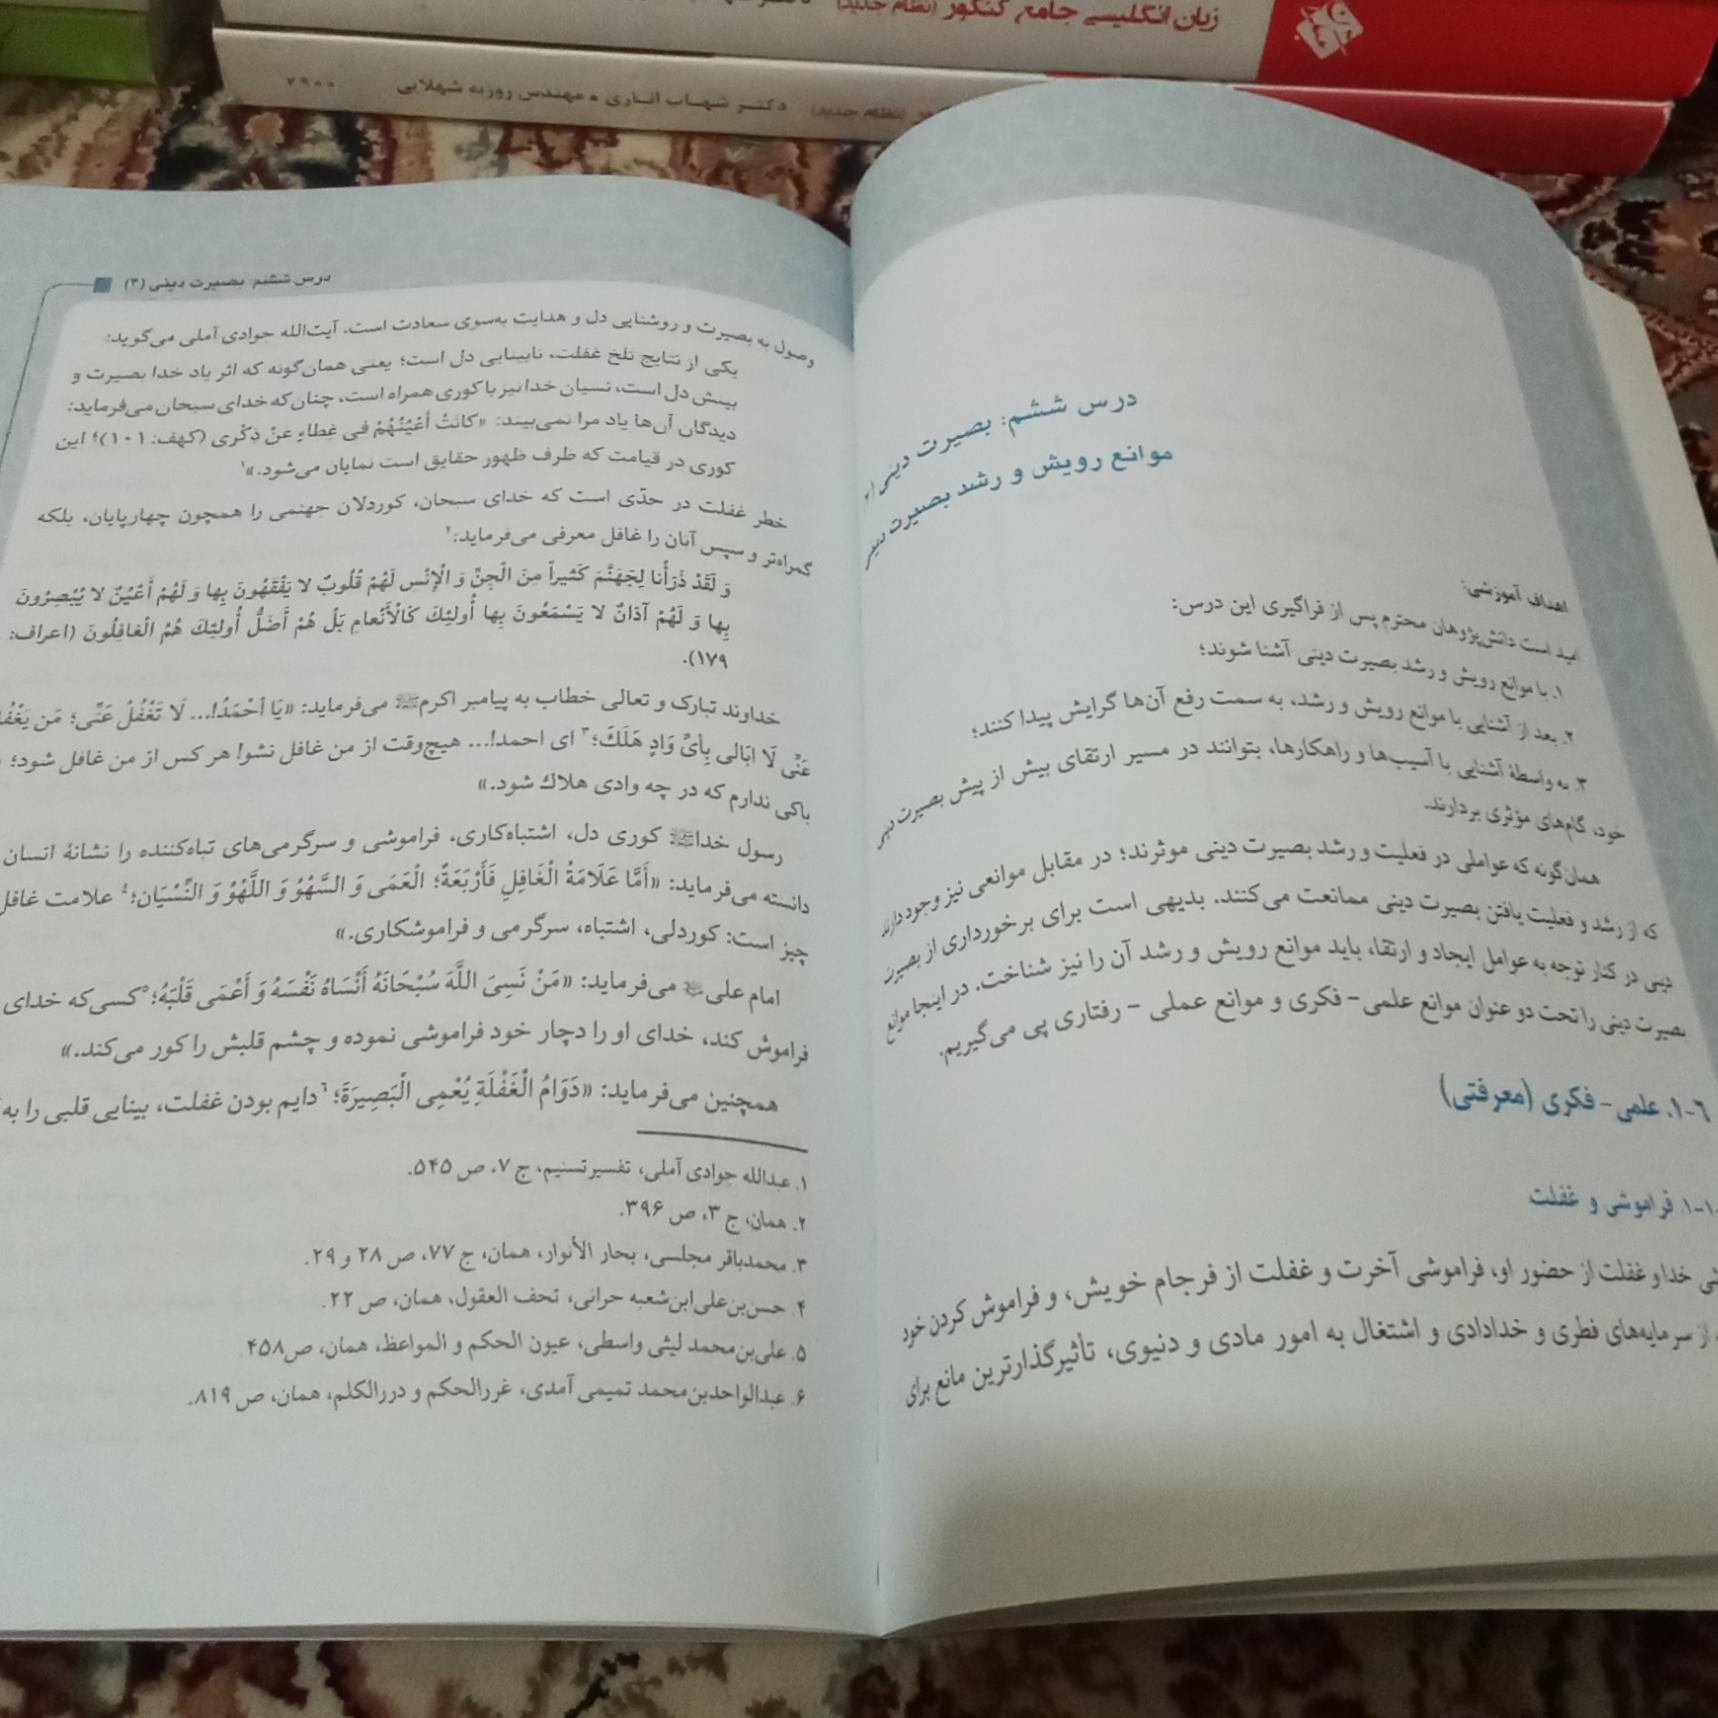 زبان انگلیسی جامع کنکور (نظام جدید)
دکتر شهاب اناری • مهندس روزبه شهلایی
(نظام جدید)
۷۹۰۰
درس ششم: بصیرت دینی (۳)
موانع رویش و رشد بصیرت دینی
اهداف آموزشی:
امید است دانش‌پژوهان محترم پس از فراگیری این درس:
۱. با موانع رویش و رشد بصیرت دینی آشنا شوند؛
۲. بعد از آشنایی با موانع رویش و رشد، به سمت رفع آن‌ها گرایش پیدا کنند؛
۳. به واسطهٔ آشنایی با آسیب‌ها و راهکارها، بتوانند در مسیر ارتقای بیش از پیش بصیرت دینی
خود، گام‌های مؤثری بردارند.
همان‌گونه که عواملی در فعلیت و رشد بصیرت دینی موثرند؛ در مقابل موانعی نیز وجود دارند
که از رشد و فعلیت یافتن بصیرت دینی ممانعت می‌کنند. بدیهی است برای برخورداری از بصیرت
دینی در کنار توجه به عوامل ایجاد و ارتقا، باید موانع رویش و رشد آن را نیز شناخت. در اینجا موانع
بصیرت دینی را تحت دو عنوان موانع علمی- فکری و موانع عملی - رفتاری پی می‌گیریم.
۶-۱. علمی- فکری (معرفتی)
۱-۱. فراموشی و غفلت
خدا و غفلت از حضور او، فراموشی آخرت و غفلت از فرجام خویش، و فراموش کردن خود
از سرمایه‌های فطری و خدادادی و اشتغال به امور مادی و دنیوی، تاثیرگذارترین مانع برای
درس ششم: بصیرت دینی (۳)
وصول به بصیرت و روشنایی دل و هدایت به‌سوی سعادت است. آیت‌الله جوادی آملی می‌گوید:
یکی از نتایج تلخ غفلت، نابینایی دل است؛ یعنی همان‌گونه که اثر یاد خدا بصیرت و
بینش دل است، نسیان خدا نیز با کوری همراه است، چنان‌که خدای سبحان می‌فرماید:
دیدگان آن‌ها یاد مرا نمی‌بیند: «کانَتْ أَعْیُنُهُمْ فی غِطاءٍ عَنْ ذِکْری (کهف: ۱۰۱)؛ این
کوری در قیامت که ظرف ظهور حقایق است نمایان می‌شود.»۱
خطر غفلت در حدّی است که خدای سبحان، کوردلان جهنمی را همچون چهارپایان، بلکه
گمراه‌تر و سپس آنان را غافل معرفی می‌فرماید:۲
وَ لَقَدْ ذَرَأْنا لِجَهَنَّمَ کَثیراً مِنَ الْجِنِّ وَ الْإِنْسِ لَهُمْ قُلُوبٌ لا یَفْقَهُونَ بِها وَ لَهُمْ أَعْیُنٌ لا یُبْصِرُونَ
بِها وَ لَهُمْ آذانٌ لا یَسْمَعُونَ بِها أُولئِكَ کَالْأَنْعامِ بَلْ هُمْ أَضَلُّ أُولئِكَ هُمُ الْغافِلُونَ (اعراف:
۱۷۹).
خداوند تبارک و تعالی خطاب به پیامبر اکرمﷺ می‌فرماید: «یَا أَحْمَدُ!... لَا تَغْفُلْ عَنِّی؛ مَن
عَنِّی لَا ابَالی بِأیِّ وَادٍ هَلَكَ؛۳ ای احمد!... هیچ‌وقت از من غافل نشو! هر کس از من غافل شود؛
باکی ندارم که در چه وادی هلاك شود.»
رسول خداﷺ کوری دل، اشتباه‌کاری، فراموشی و سرگرمی‌های تباه‌کننده را نشانهٔ انسان
دانسته می‌فرماید: «أَمَّا عَلَامَةُ الْغَافِلِ فَأَرْبَعَةٌ؛ الْعَمَی وَ السَّهْوُ وَ اللَّهْوُ وَ النِّسْیَان؛۴ علامت غافل
چیز است: کوردلی، اشتباه، سرگرمی و فراموشکاری.»
امام علی می‌فرماید: «مَنْ نَسِیَ اللَّهَ سُبْحَانَهُ أَنْسَاهُ نَفْسَهُ وَ أَعْمَی قَلْبَهُ؛۵ کسی‌که خدای
فراموش کند، خدای او را دچار خود فراموشی نموده و چشم قلبش را کور می‌کند.»
همچنین می‌فرماید: «دَوَامُ الْغَفْلَةِ یُعْمِی الْبَصِیرَةَ؛۶ دایم بودن غفلت، بینایی قلبی را به
۱. عبدالله جوادی آملی، تفسیر تسنیم، ج ۷، ص ۵۴۵.
۲. همان، ج ۳، ص ۳۹۶.
۳. محمدباقر مجلسی، بحار الأنوار، همان، ج ۷۷، ص ۲۸ و ۲۹.
۴. حسن‌بن‌علی‌ابن‌شعبه حرانی، تحف العقول، همان، ص ۲۲.
۵. علی‌بن‌محمد لیثی واسطی، عیون الحکم و المواعظ، همان، ص۴۵۸
۶. عبدالواحدبن‌محمد تمیمی آمدی، غررالحکم و دررالکلم، همان، ص ۸۱۹.